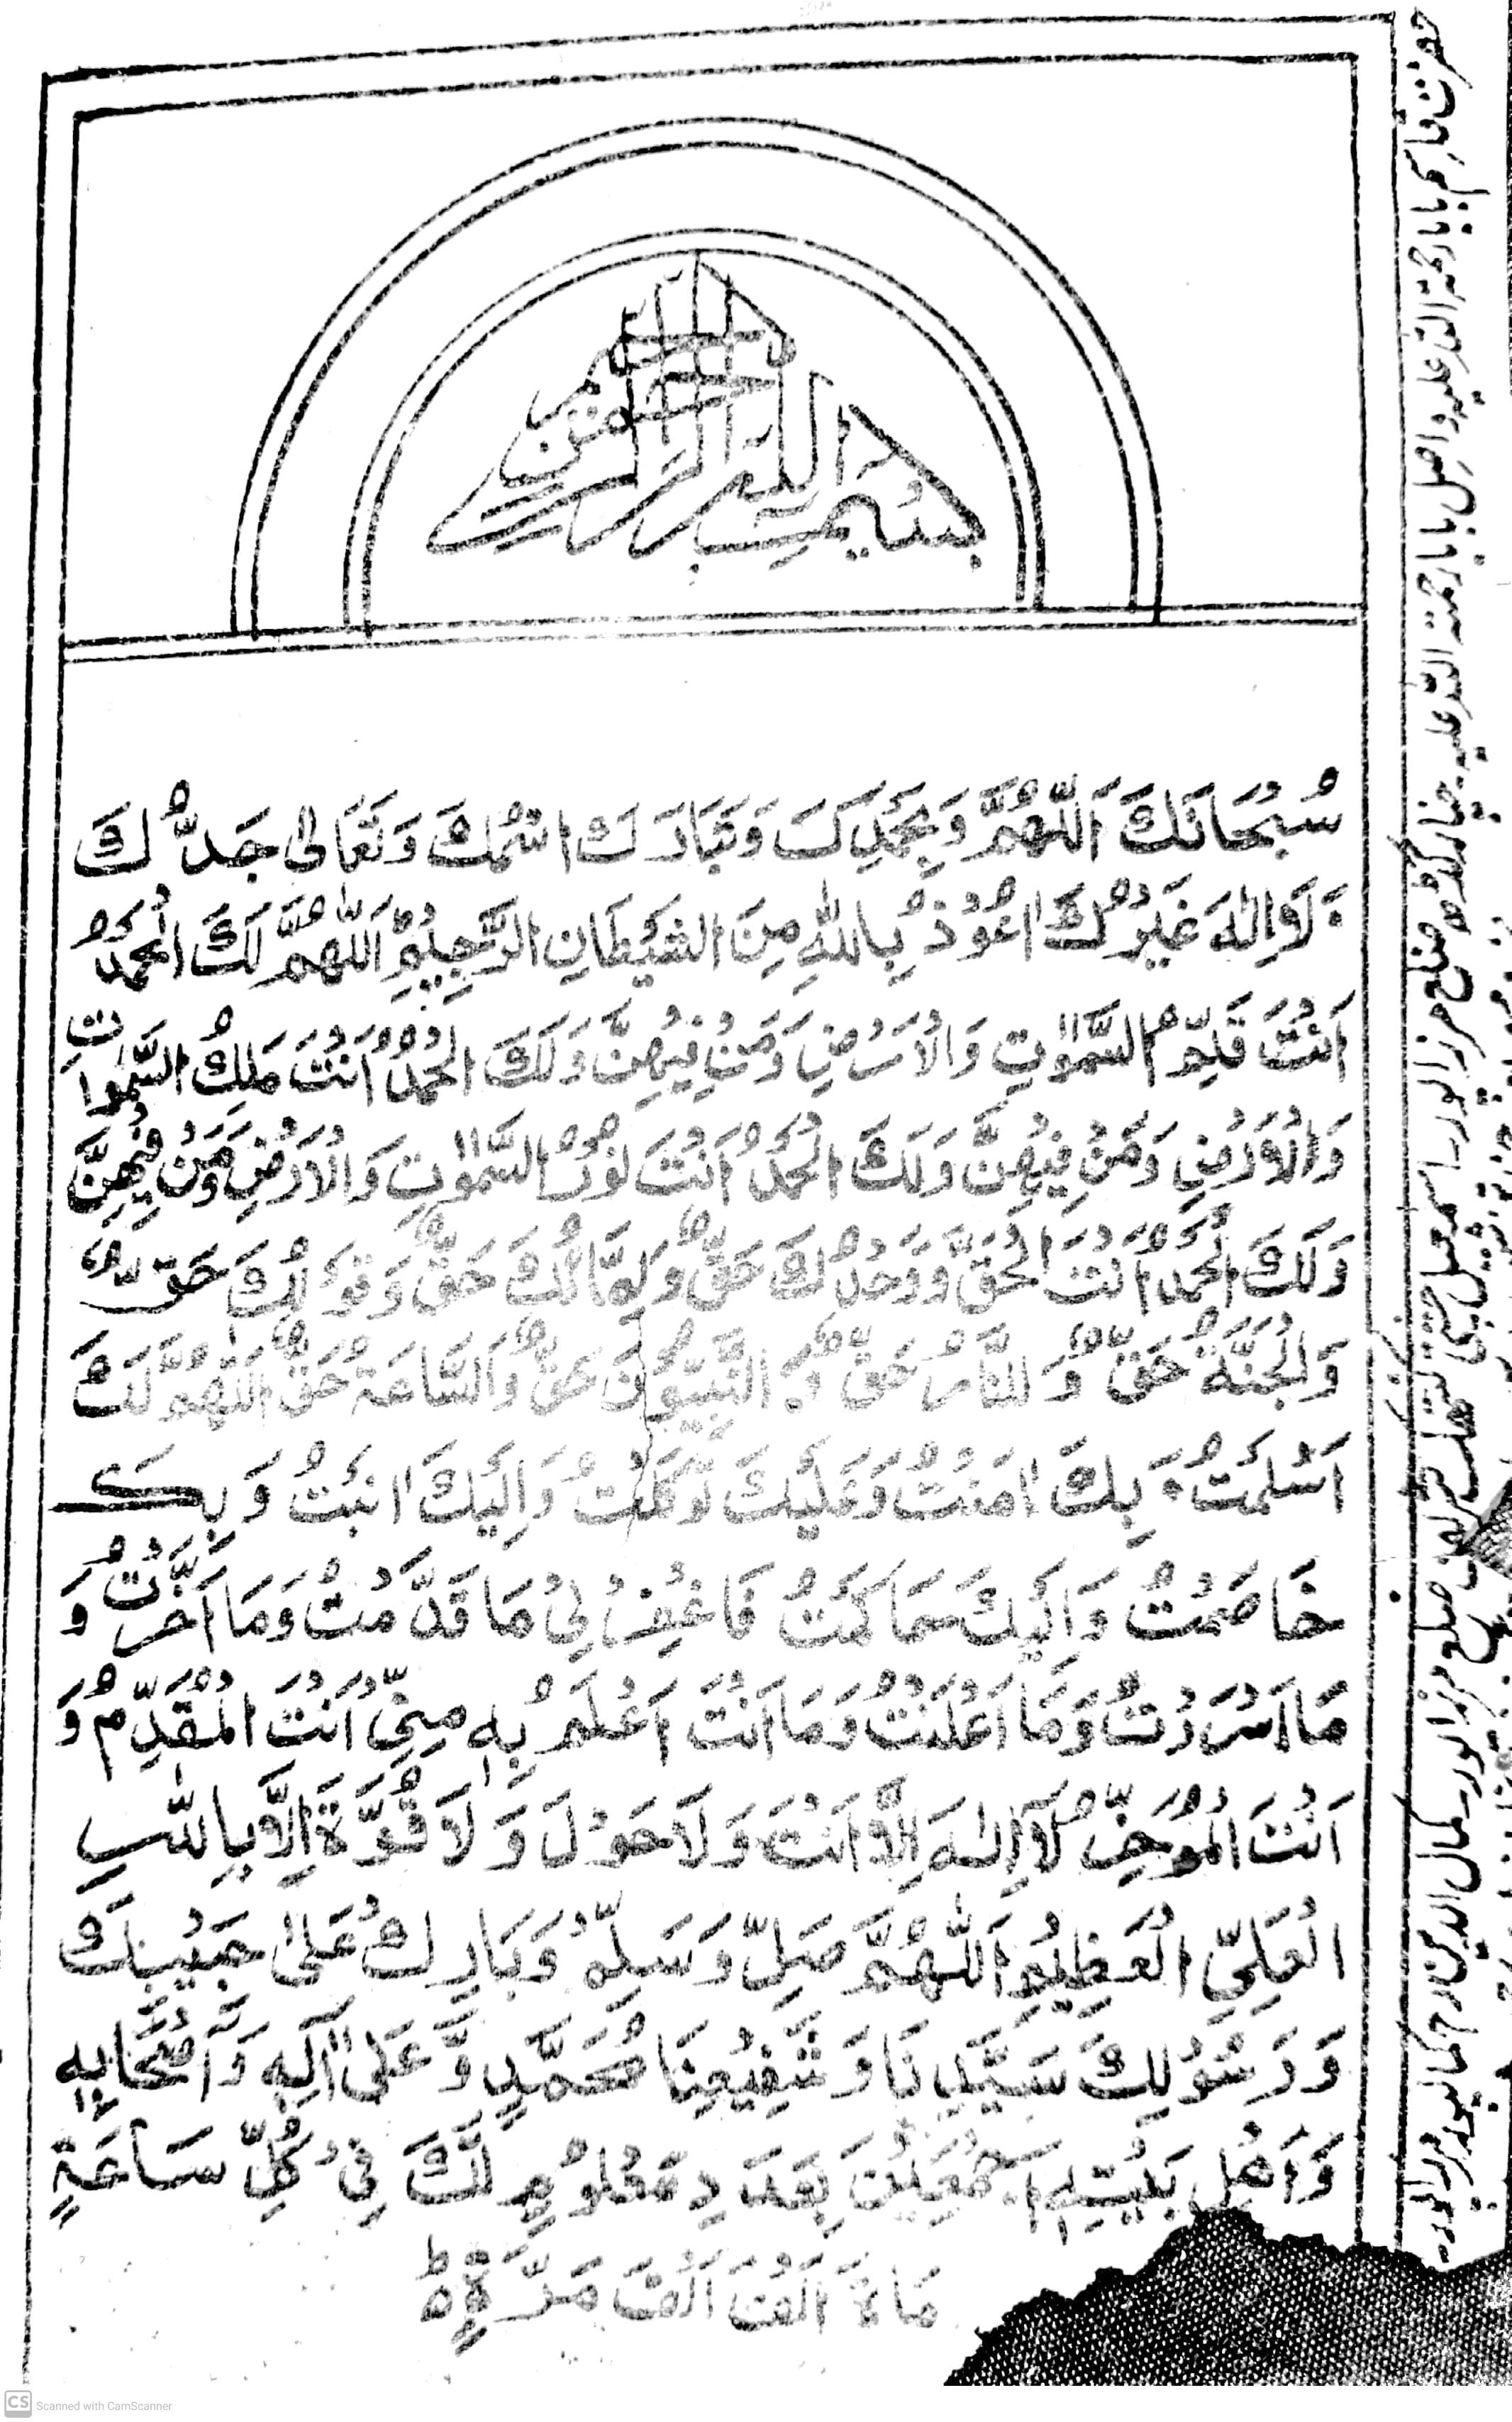 بسم الله الرحمن الرحيم
سُبْحَانَكَ اَللّٰهُمَّ وَبِحَمْدِكَ وَتَبَارَكَ اسْمُكَ وَتَعَالٰى جَدُّكَ
وَلَا اِلٰهَ غَيْرُكَ اَعُوْذُ بِاللّٰهِ مِنَ الشَّيْطَانِ الرَّجِيْمِ اَللّٰهُمَّ لَكَ الْحَمْدُ
اَنْتَ قَيِّمُ السَّمٰوٰتِ وَالْاَرْضِ وَمَنْ فِيْهِنَّ وَلَكَ الْحَمْدُ اَنْتَ مَلِكُ السَّمٰوَاتِ
وَالْاَرْضِ وَمَنْ فِيْهِنَّ وَلَكَ الْحَمْدُ اَنْتَ نُوْرُ السَّمٰوٰتِ وَالْاَرْضِ وَمَنْ فِيْهِنَّ
وَلَكَ الْحَمْدُ اَنْتَ الْحَقُّ وَوَعْدُكَ حَقٌّ وَلِقَائُكَ حَقٌّ وَقَوْلُكَ حَقٌّ
وَالْجَنَّةُ حَقٌّ وَالنَّارُ حَقٌّ وَ النَّبِيُّوْنَ حَقٌّ وَالسَّاعَةُ حَقٌّ اَللّٰهُمَّ لَكَ
اَسْلَمْتُ وَ بِكَ اٰمَنْتُ وَعَلَيْكَ تَوَكَّلْتُ وَاِلَيْكَ اَنَبْتُ وَ بِكَ
خَاصَمْتُ وَاِلَيْكَ حَاكَمْتُ فَاغْفِرْ لِيْ مَا قَدَّمْتُ وَمَا اَخَّرْتُ وَ
مَا اَسْرَرْتُ وَمَا اَعْلَنْتُ وَمَا اَنْتَ اَعْلَمُ بِهٖ مِنِّيْ اَنْتَ الْمُقَدِّمُ وَ
اَنْتَ الْمُؤَخِّرُ لَآ اِلٰهَ اِلَّا اَنْتَ وَلَا حَوْلَ وَلَا قُوَّةَ اِلَّا بِاللّٰهِ
الْعَلِيِّ الْعَظِيْمِ اَللّٰهُمَّ صَلِّ وَسَلِّمْ وَبَارِكْ عَلٰى حَبِيْبِكَ
وَرَسُوْلِكَ سَيِّدِنَا وَشَفِيْعِنَا مُحَمَّدٍ وَّعَلٰى اٰلِهٖ وَاَصْحَابِهٖ
وَاَهْلِ بَيْتِهٖ اَجْمَعِيْنَ بِعَدَدِ مَعْلُوْمٍ لَّكَ فِيْ كُلِّ سَاعَةٍ
مِأَةَ اَلْفَ اَلْفَ مَرَّةٍ ط
حضرت قاسم بابا رحمۃ اللہ علیہ و اصل بابا رحمتہ اللہ علیہ